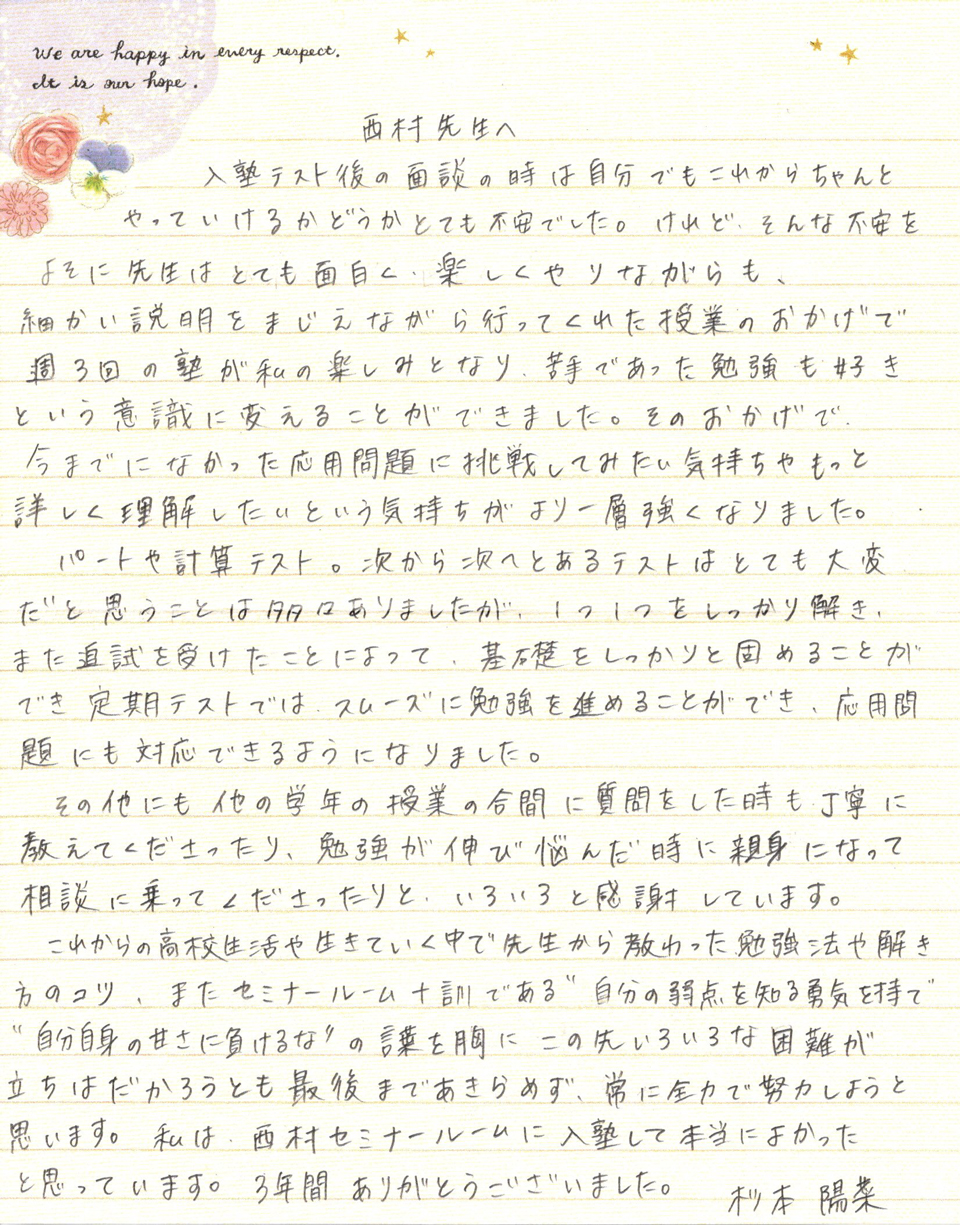 We are happy in every respect.
It is our hope.
西村先生へ
入塾テスト後の面談の時は自分でもこれからちゃんと
やっていけるかどうかとても不安でした。けれど、そんな不安を
よそに先生はとても面白く、楽しくやりながらも、
細かい説明をまじえながら行ってくれた授業のおかげで
週3回の塾が私の楽しみとなり、苦手であった勉強も好き
という意識に変えることができました。そのおかげで、
今までになかった応用問題に挑戦してみたい気持ちやもっと
詳しく理解したいという気持ちがより一層強くなりました。
パートや計算テスト。次から次へとあるテストはとても大変
だと思うことは多々ありましたが、1つ1つをしっかり解き、
また追試を受けたことによって、基礎をしっかりと固めることが
でき定期テストでは、スムーズに勉強を進めることができ、応用問
題にも対応できるようになりました。
その他にも他の学年の授業の合間に質問をした時も丁寧に
教えてくださったり、勉強が伸び悩んだ時に親身になって
相談に乗ってくださったりと、いろいろと感謝しています。
これからの高校生活や生きていく中で先生から教わった勉強法や解き
方のコツ、またセミナールーム十訓である"自分の弱点を知る勇気を持て"
"自分自身の甘さに負けるな"の言葉を胸にこの先いろいろな困難が
立ちはだかろうとも最後まであきらめず、常に全力で努力しようと
思います。私は、西村セミナールームに入塾して本当によかった
と思っています。3年間ありがとうございました。
杉本 陽菜